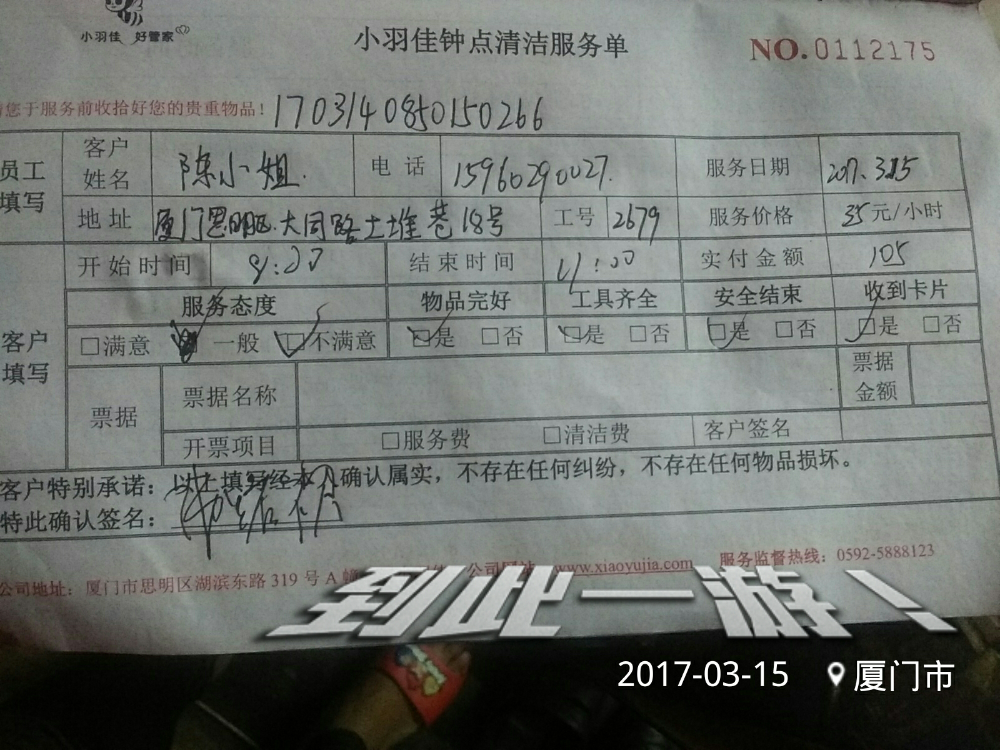 小羽佳 好管家
小羽佳钟点清洁服务单
NO.0112175
您于服务前收拾好您的贵重物品！ 1703140850150266
员工填写 客户姓名 陈小姐. 电话 15960290027. 服务日期 2017.3.15
地址 厦门思明区大同路土堆巷18号 工号 2679 服务价格 35元/小时
开始时间 结束时间 实付金额 105
服务态度 物品完好 工具齐全 安全结束 收到卡片
客户填写 □满意 一般 □不满意 □是 □否 □是 □否 □是 □否 □是 □否
票据 票据名称 票据金额
开票项目 □服务费 □清洁费 客户签名
客户特别承诺：以上填写经本人确认属实，不存在任何纠纷，不存在任何物品损坏。
特此确认签名：
公司地址：厦门市思明区湖滨东路 319 号 A www.xiaoyujia.com 服务监督热线：0592-5888123
到此一游！
2017-03-15 厦门市